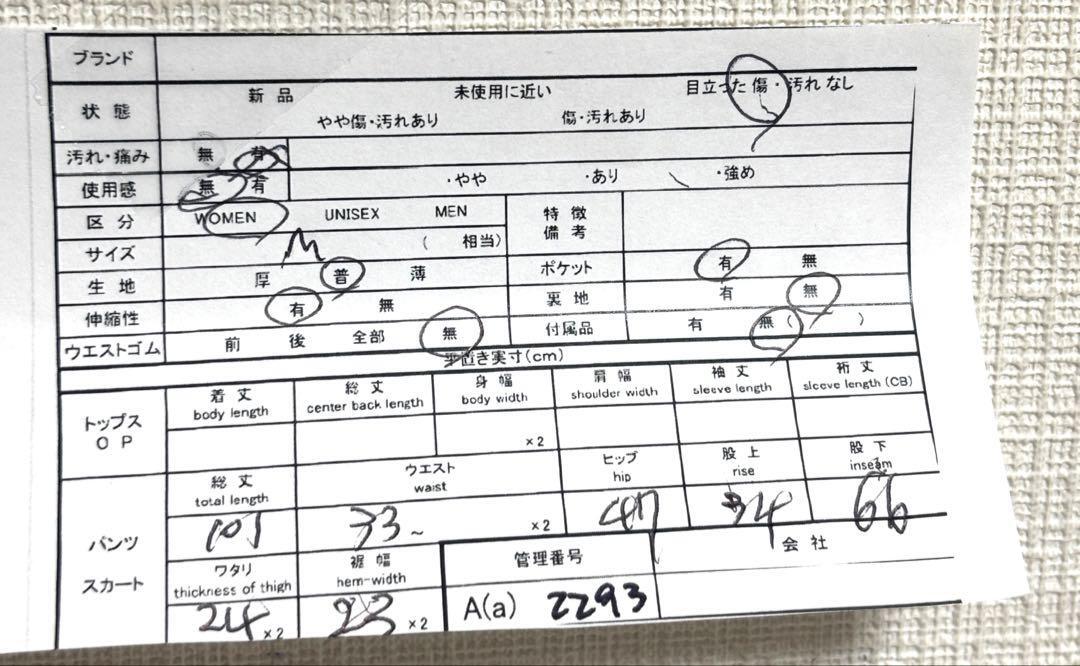 ブランド
状態 新品 未使用に近い 目立った傷・汚れなし
やや傷・汚れあり 傷・汚れあり
汚れ・痛み 無 有
使用感 無 有 ・やや ・あり ・強め
区分 WOMEN UNISEX MEN 特徴備考
サイズ M ( 相当)
生地 厚 普 薄 ポケット 有 無
伸縮性 有 無 裏地 有 無
ウエストゴム 前 後 全部 無 付属品 有 無 ( )
平置き実寸(cm)
トップス OP
着丈 総丈 身幅 肩幅 袖丈 裄丈
body length center back length body width shoulder width sleeve length sleeve length (CB)
×2
パンツ スカート
総丈 ウエスト ヒップ 股上 股下
total length waist hip rise inseam
33~ ×2 47 34 66
ワタリ 裾幅 管理番号 会社
thickness of thigh hem-width
24 ×2 23 ×2 A(a) 2293